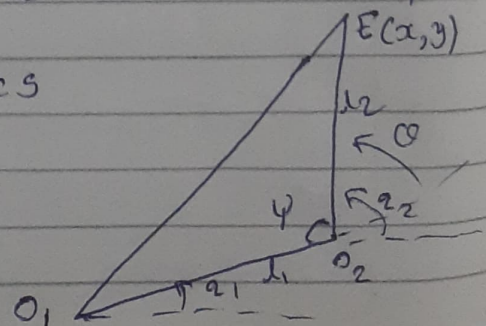 E(x,y)
cs
l2
θ
ψ
q2
O2
q1
l1
O1